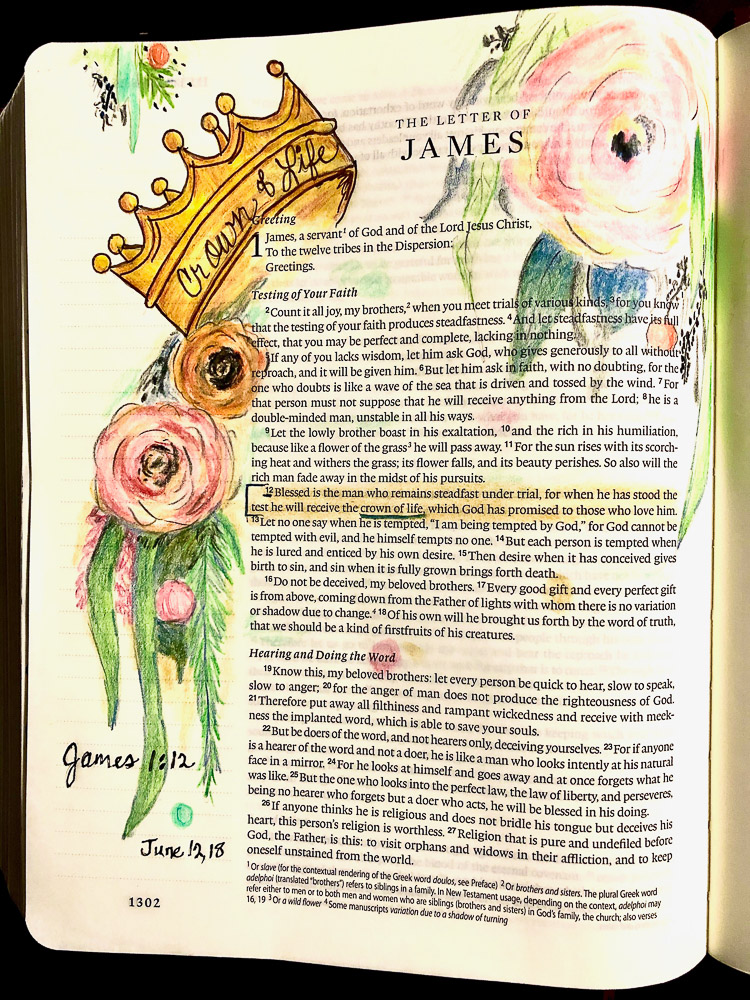 THE LETTER OF
JAMES
Crown of Life
Greeting
1 James, a servant¹ of God and of the Lord Jesus Christ,
To the twelve tribes in the Dispersion:
Greetings.
Testing of Your Faith
²Count it all joy, my brothers,² when you meet trials of various kinds, ³for you know
that the testing of your faith produces steadfastness. ⁴And let steadfastness have its full
effect, that you may be perfect and complete, lacking in nothing.
⁵If any of you lacks wisdom, let him ask God, who gives generously to all without
reproach, and it will be given him. ⁶But let him ask in faith, with no doubting, for the
one who doubts is like a wave of the sea that is driven and tossed by the wind. ⁷For
that person must not suppose that he will receive anything from the Lord; ⁸he is a
double-minded man, unstable in all his ways.
⁹Let the lowly brother boast in his exaltation, ¹⁰and the rich in his humiliation,
because like a flower of the grass³ he will pass away. ¹¹For the sun rises with its scorch-
ing heat and withers the grass; its flower falls, and its beauty perishes. So also will the
rich man fade away in the midst of his pursuits.
¹²Blessed is the man who remains steadfast under trial, for when he has stood the
test he will receive the crown of life, which God has promised to those who love him.
¹³Let no one say when he is tempted, “I am being tempted by God,” for God cannot be
tempted with evil, and he himself tempts no one. ¹⁴But each person is tempted when
he is lured and enticed by his own desire. ¹⁵Then desire when it has conceived gives
birth to sin, and sin when it is fully grown brings forth death.
¹⁶Do not be deceived, my beloved brothers. ¹⁷Every good gift and every perfect gift
is from above, coming down from the Father of lights with whom there is no variation
or shadow due to change.⁴ ¹⁸Of his own will he brought us forth by the word of truth,
that we should be a kind of firstfruits of his creatures.
Hearing and Doing the Word
¹⁹Know this, my beloved brothers: let every person be quick to hear, slow to speak,
slow to anger; ²⁰for the anger of man does not produce the righteousness of God.
²¹Therefore put away all filthiness and rampant wickedness and receive with meek-
ness the implanted word, which is able to save your souls.
²²But be doers of the word, and not hearers only, deceiving yourselves. ²³For if anyone
is a hearer of the word and not a doer, he is like a man who looks intently at his natural
face in a mirror. ²⁴For he looks at himself and goes away and at once forgets what he
was like. ²⁵But the one who looks into the perfect law, the law of liberty, and perseveres,
being no hearer who forgets but a doer who acts, he will be blessed in his doing.
²⁶If anyone thinks he is religious and does not bridle his tongue but deceives his
heart, this person's religion is worthless. ²⁷Religion that is pure and undefiled before
God, the Father, is this: to visit orphans and widows in their affliction, and to keep
oneself unstained from the world.
James 1:12
June 12, 18
¹Or slave (for the contextual rendering of the Greek word doulos, see Preface) ²Or brothers and sisters. The plural Greek word
adelphoi (translated “brothers”) refers to siblings in a family. In New Testament usage, depending on the context, adelphoi may
refer either to men or to both men and women who are siblings (brothers and sisters) in God's family, the church; also verses
16, 19 ³Or a wild flower ⁴Some manuscripts variation due to a shadow of turning
1302